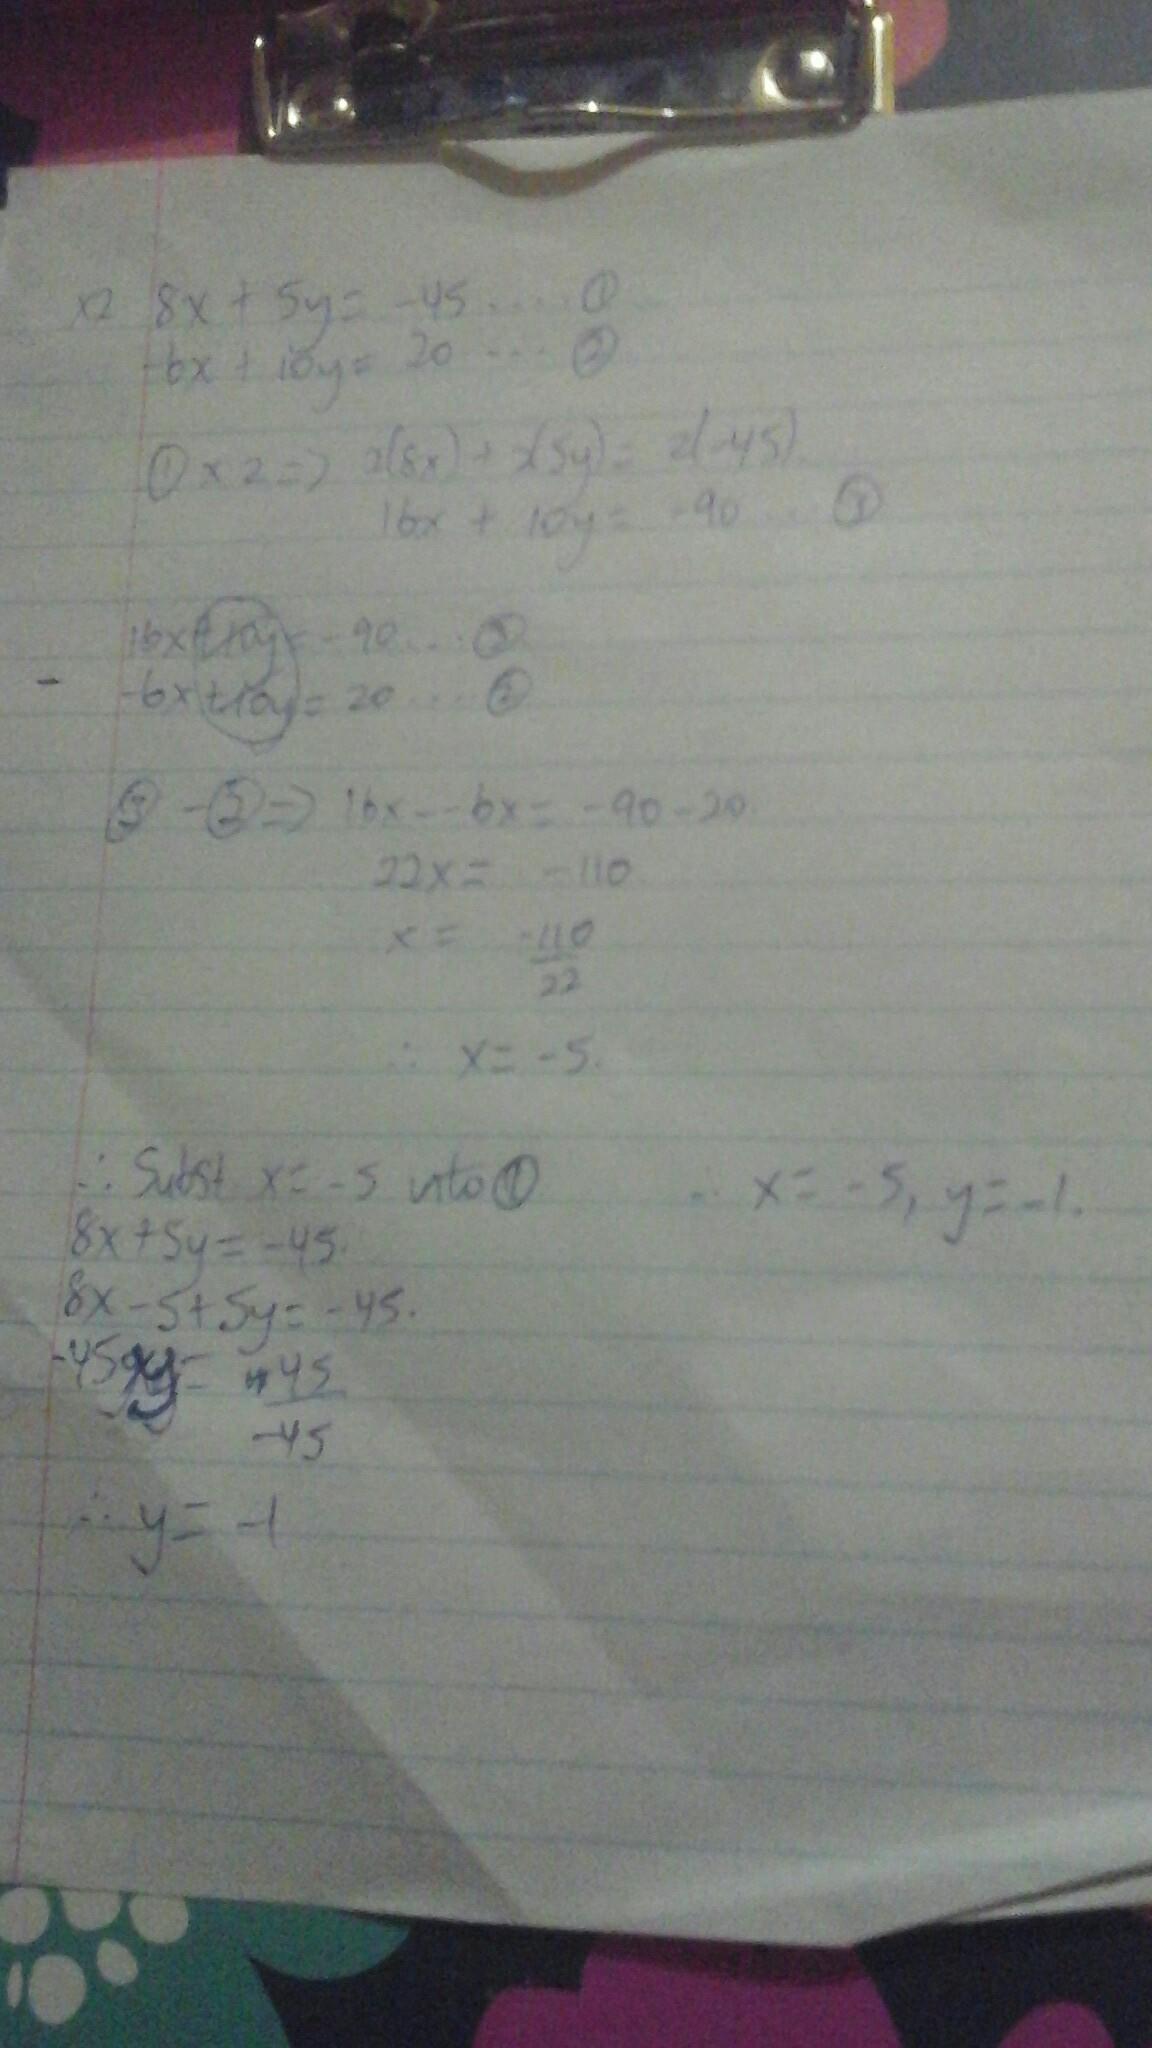 x2 8x + 5y = -45 .... ①
-6x + 10y = 20 .... ②
① x 2 => 2(8x) + 2(5y) = 2(-45).
16x + 10y = -90 ... ③
16x + 10y = -90 .... ③
- -6x + 10y = 20 .... ②
③ - ② => 16x - -6x = -90 - 20.
22x = -110
x = -110
22
∴ x = -5.
∴ Subst x = -5 into ①
8x + 5y = -45.
8x - 5 + 5y = -45.
-45 y = 45
-45
∴ y = -1
∴ x = -5, y = -1.